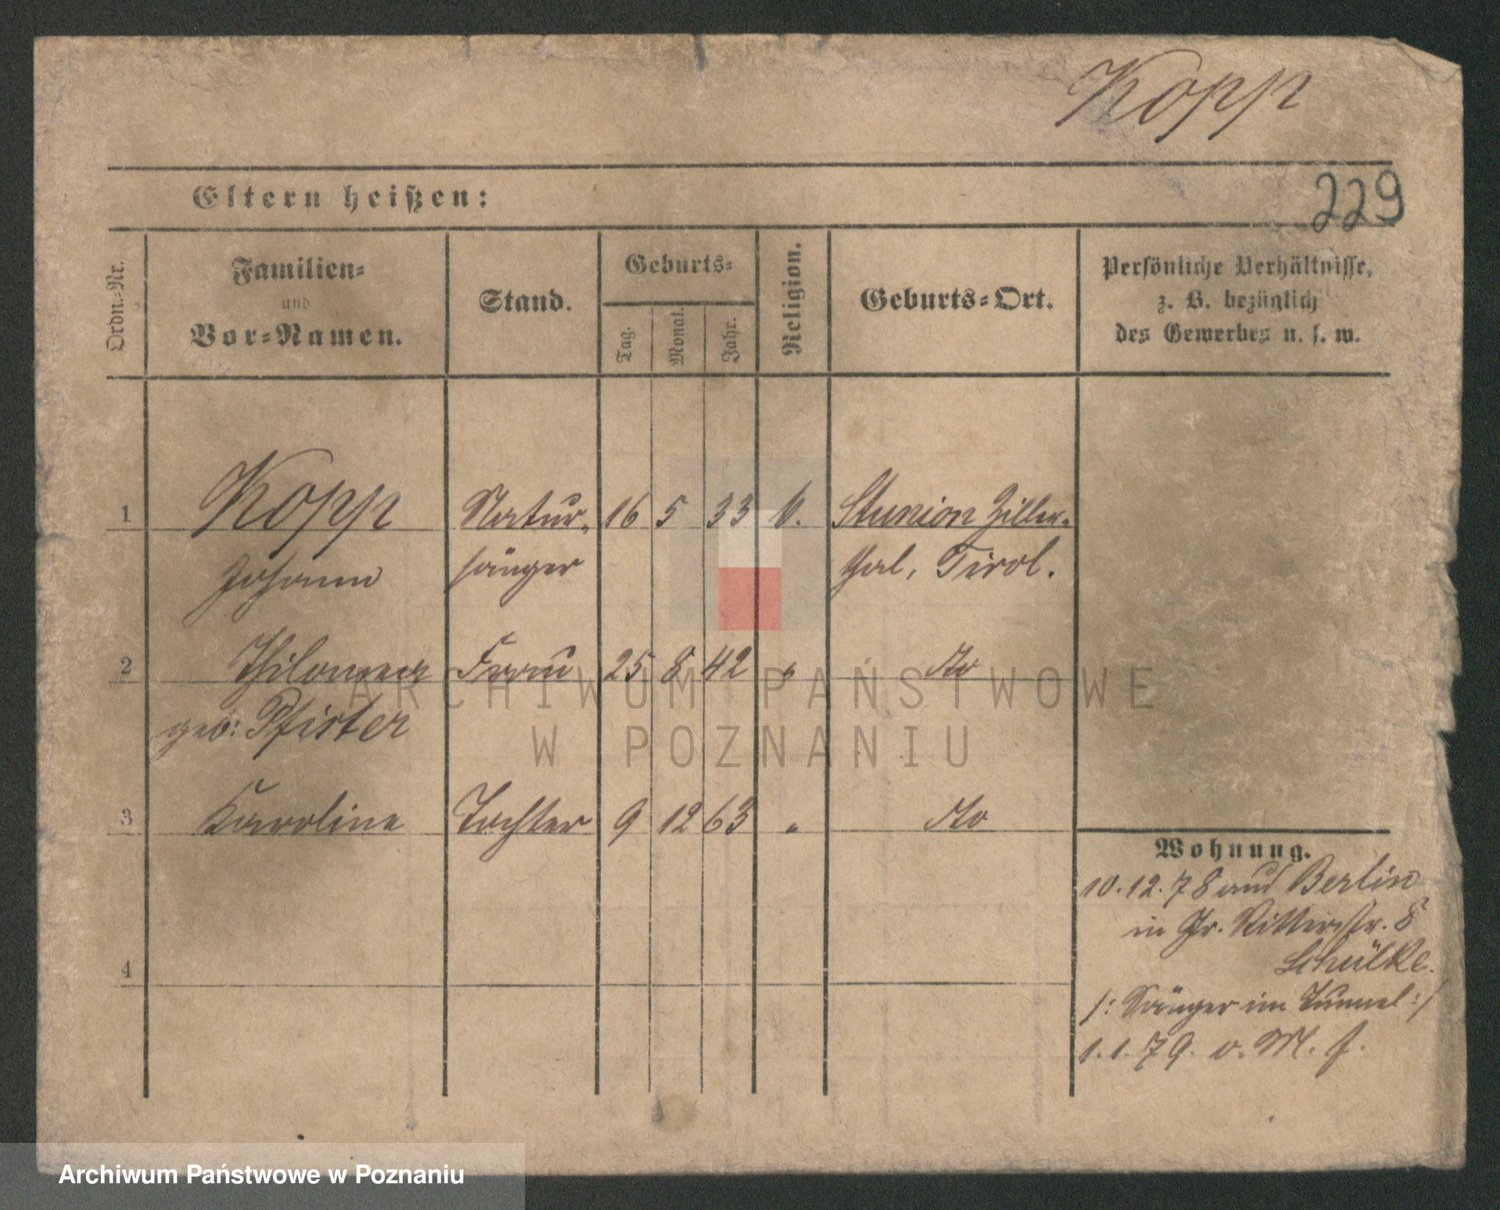 Kopp
229
Eltern heißen:
Ordn.-Nr.
Familien-
und
Vor-Namen.
Stand.
Geburts-
Tag.
Monat.
Jahr.
Religion.
Geburts-Ort.
Persönliche Verhältnisse,
z. B. bezüglich
des Gewerbes u. s. w.
1 Kopp Natur- 16 5 33 Ziller-
Johann sänger thal, Tirol.
2 Philomena Frau 25 8 42 " do
geb: Pfister
3 Karoline Tochter 9 12 63 " do
4
Wohnung.
10.12.78 aus Berlin
in Gr. Ritterstr. 8
Schülke.
/: Sänger im Tunnel :/
1.1.79. v. M. f.
ARCHIWUM PAŃSTWOWE
W POZNANIU
Archiwum Państwowe w Poznaniu